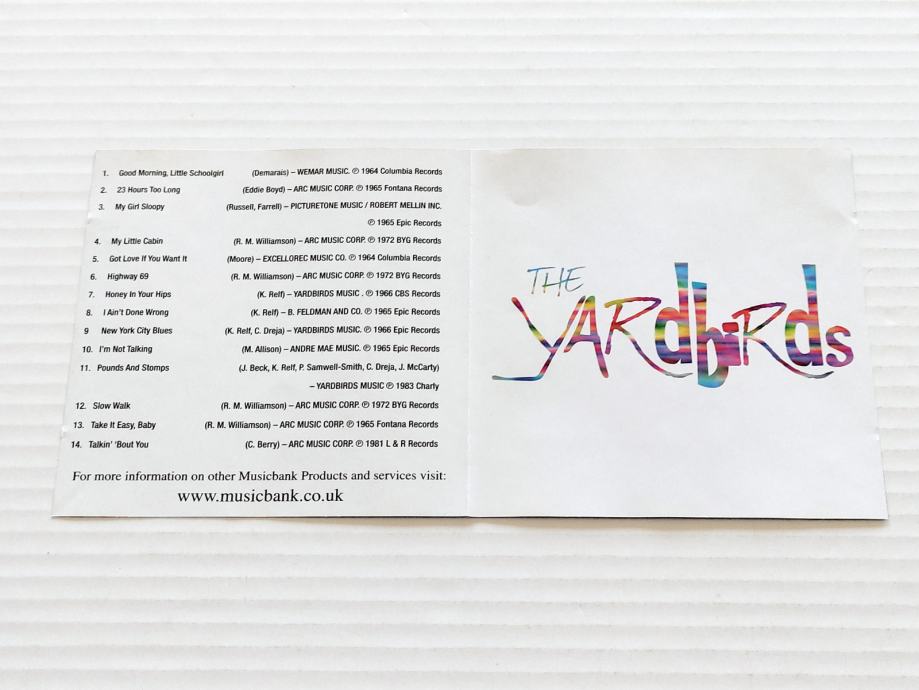 1. Good Morning, Little Schoolgirl (Demarais) – WEMAR MUSIC. ℗ 1964 Columbia Records
2. 23 Hours Too Long (Eddie Boyd) – ARC MUSIC CORP. ℗ 1965 Fontana Records
3. My Girl Sloopy (Russell, Farrell) – PICTURETONE MUSIC / ROBERT MELLIN INC.
℗ 1965 Epic Records
4. My Little Cabin (R. M. Williamson) – ARC MUSIC CORP. ℗ 1972 BYG Records
5. Got Love If You Want It (Moore) – EXCELLOREC MUSIC CO. ℗ 1964 Columbia Records
6. Highway 69 (R. M. Williamson) – ARC MUSIC CORP. ℗ 1972 BYG Records
7. Honey In Your Hips (K. Relf) – YARDBIRDS MUSIC . ℗ 1966 CBS Records
8. I Ain't Done Wrong (K. Relf) – B. FELDMAN AND CO. ℗ 1965 Epic Records
9 New York City Blues (K. Relf, C. Dreja) – YARDBIRDS MUSIC. ℗ 1966 Epic Records
10. I'm Not Talking (M. Allison) – ANDRE MAE MUSIC. ℗ 1965 Epic Records
11. Pounds And Stomps (J. Beck, K. Relf, P. Samwell-Smith, C. Dreja, J. McCarty)
– YARDBIRDS MUSIC ℗ 1983 Charly
12. Slow Walk (R. M. Williamson) – ARC MUSIC CORP. ℗ 1972 BYG Records
13. Take It Easy, Baby (R. M. Williamson) – ARC MUSIC CORP. ℗ 1965 Fontana Records
14. Talkin' 'Bout You (C. Berry) – ARC MUSIC CORP. ℗ 1981 L & R Records
For more information on other Musicbank Products and services visit:
www.musicbank.co.uk
THE
YARdbiRds